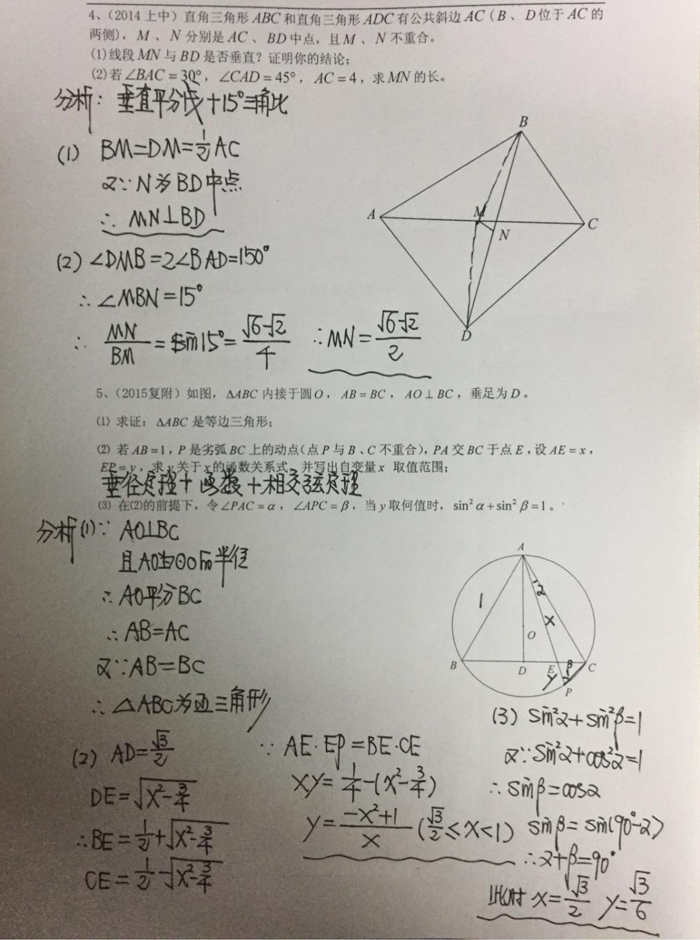 4、(2014上中) 直角三角形 ABC 和直角三角形 ADC 有公共斜边 AC (B、D位于 AC 的
两侧), M、N 分别是 AC、BD 中点, 且 M、N 不重合。
(1) 线段 MN 与 BD 是否垂直? 证明你的结论;
(2) 若 ∠BAC = 30°, ∠CAD = 45°, AC = 4, 求 MN 的长。
分析: 垂直平分线+15°三角比
(1) BM=DM=½AC
又∵N为BD中点
∴ MN⊥BD
(2) ∠DMB=2∠BAD=150°
∴ ∠MBN=15°
∴ MN/BM = sin15° = (√6-√2)/4 ∴MN = (√6-√2)/2
A
B
C
D
M
N
5、(2015复附) 如图, △ABC 内接于圆O, AB = BC, AO ⊥ BC, 垂足为 D。
(1) 求证: △ABC 是等边三角形;
(2) 若 AB = 1, P 是劣弧 BC 上的动点(点 P 与 B、C 不重合), PA 交 BC 于点 E, 设 AE = x,
EP = y, 求 y 关于 x 的函数关系式, 并写出自变量 x 取值范围;
垂径定理+函数+相交弦定理
(3) 在(2)的前提下, 令∠PAC = α, ∠APC = β, 当 y 取何值时, sin²α + sin²β = 1。
分析(1)∵ AO⊥BC
且AO为⊙O的半径
∴ AO平分BC
∴ AB=AC
又∵AB=BC
∴ △ABC为正三角形
A
B
C
D
E
O
P
1
α
x
y
β
(2) AD=√3/2
DE=√(x²-3/4)
∴BE=1/2+√(x²-3/4)
CE=1/2-√(x²-3/4)
∵ AE·EP=BE·CE
xy=1/4-(x²-3/4)
y=(-x²+1)/x (√3/2≤x<1)
(3) sin²α+sin²β=1
又∵sin²α+cos²α=1
∴sinβ=cosα
sinβ=sin(90°-α)
∴α+β=90°
此时 x=√3/2 y=√3/6